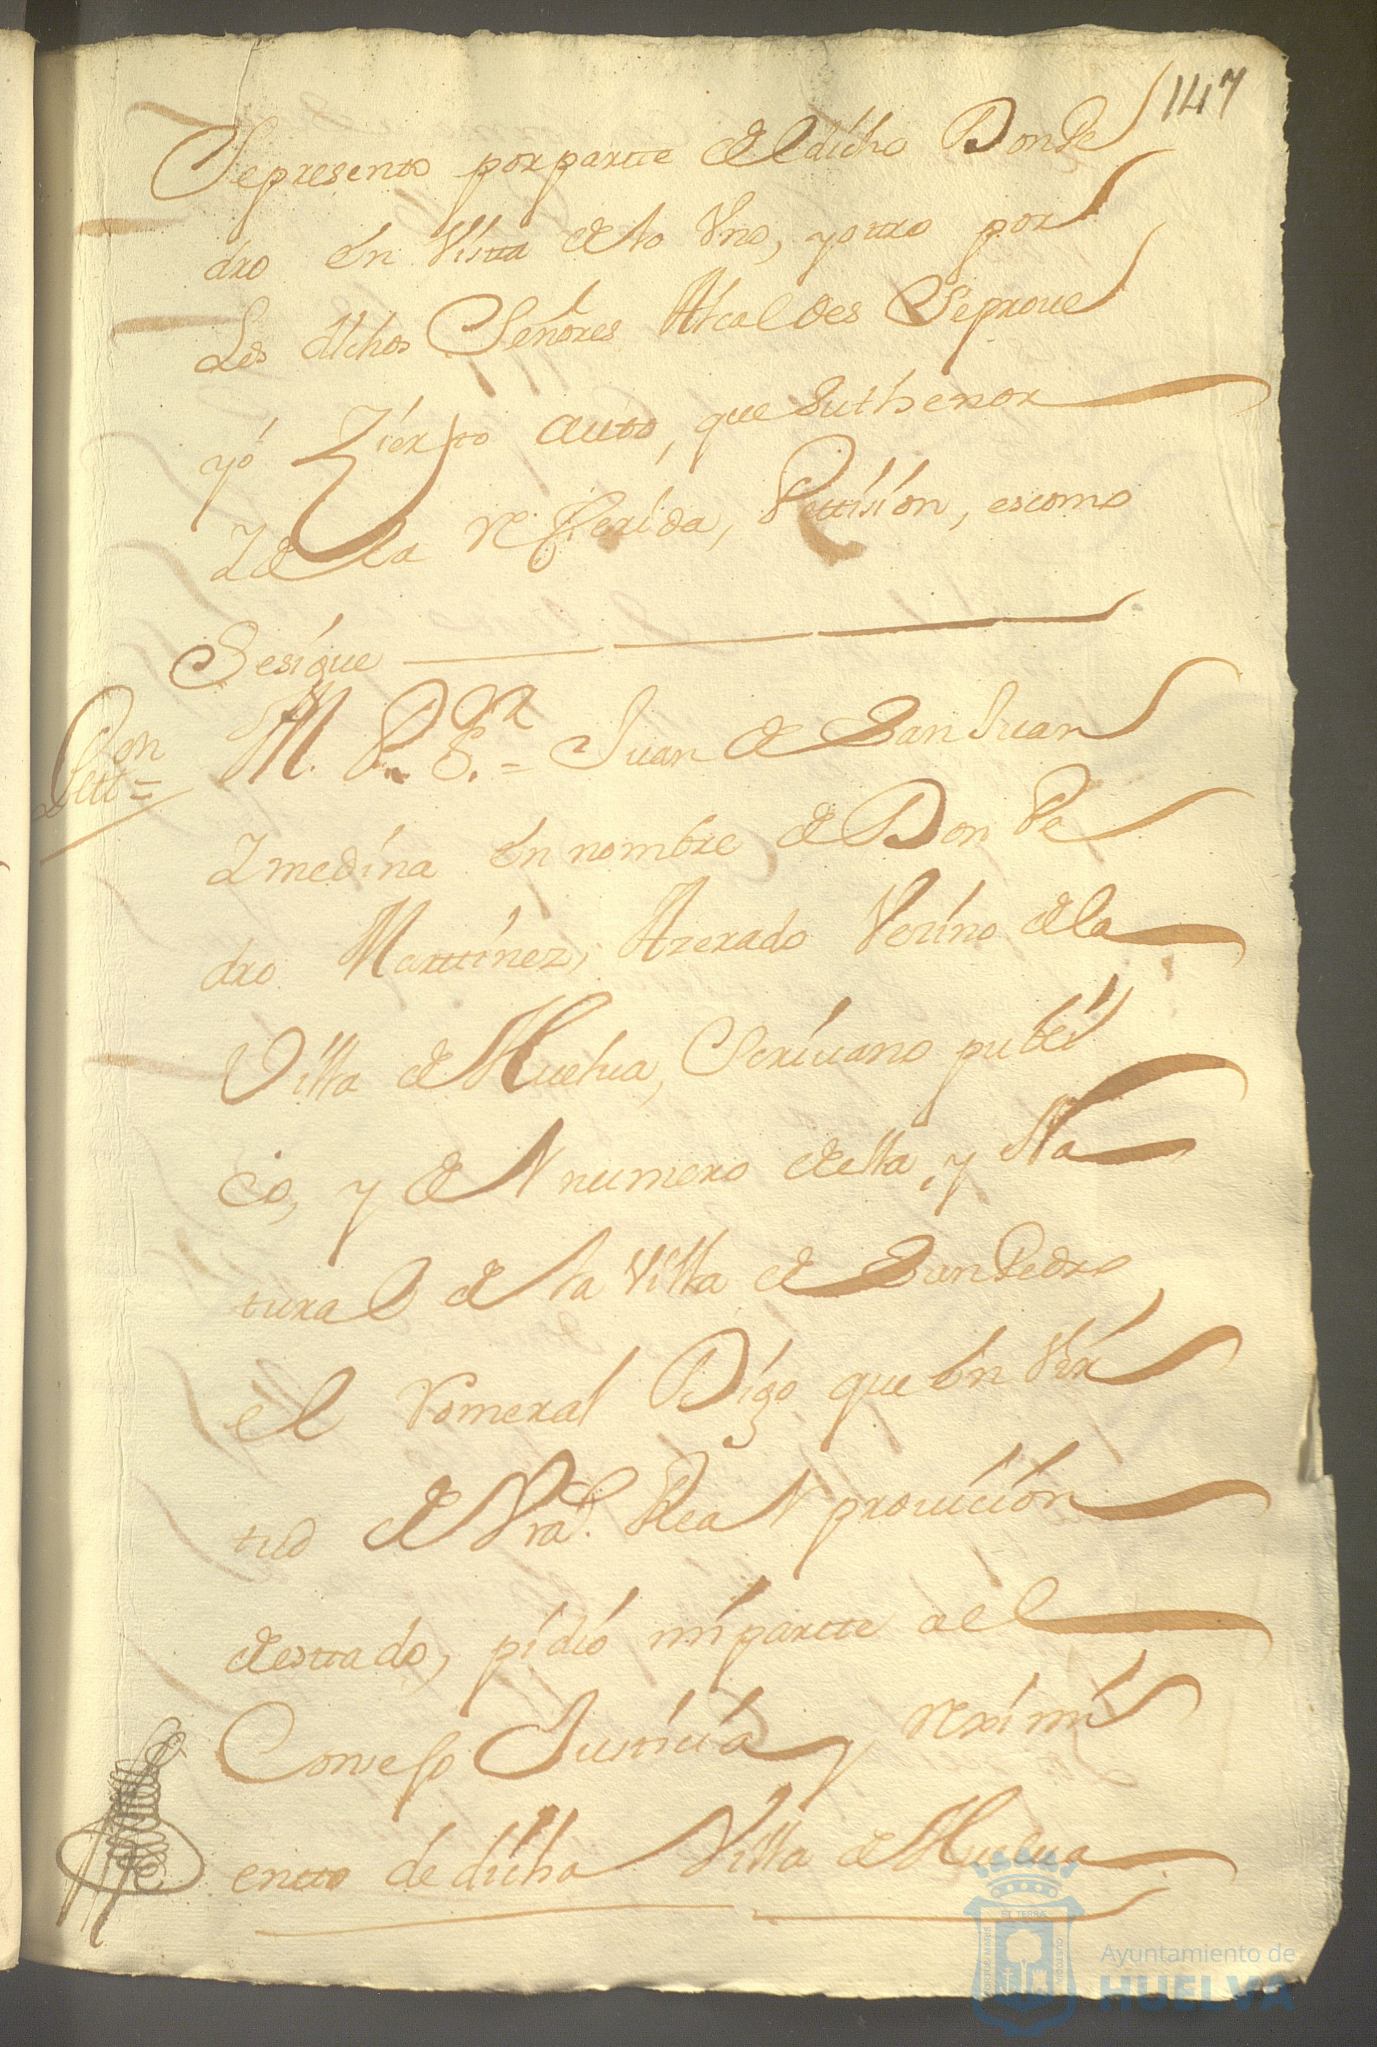 147
Sepresento porpartte deldicho Don Pe
dro En Vistta delo Vno, yottro por
Los dichos Señores Alcaldes Seproue
yó Zierto autto, que Suthenor
Y de la referida, Pettision, escomo
Sesigue
Pett=
M. P. S.r = Juan de San Juan
Y medina En nombre de Don Pe
dro Marttinez, Azerado Vezino dela
Villa de Huelua, Scriuano publi
co, y del numero della, y Na
tural de la Villa de San Pedro
el Romeral Digo que En Vir
tud de Vra. Real prouicion
desttado, pidió mi partte al
Consejo Justicia y reximi
entto de dicha Villa de Huelua
Ayuntamiento de
HUELVA